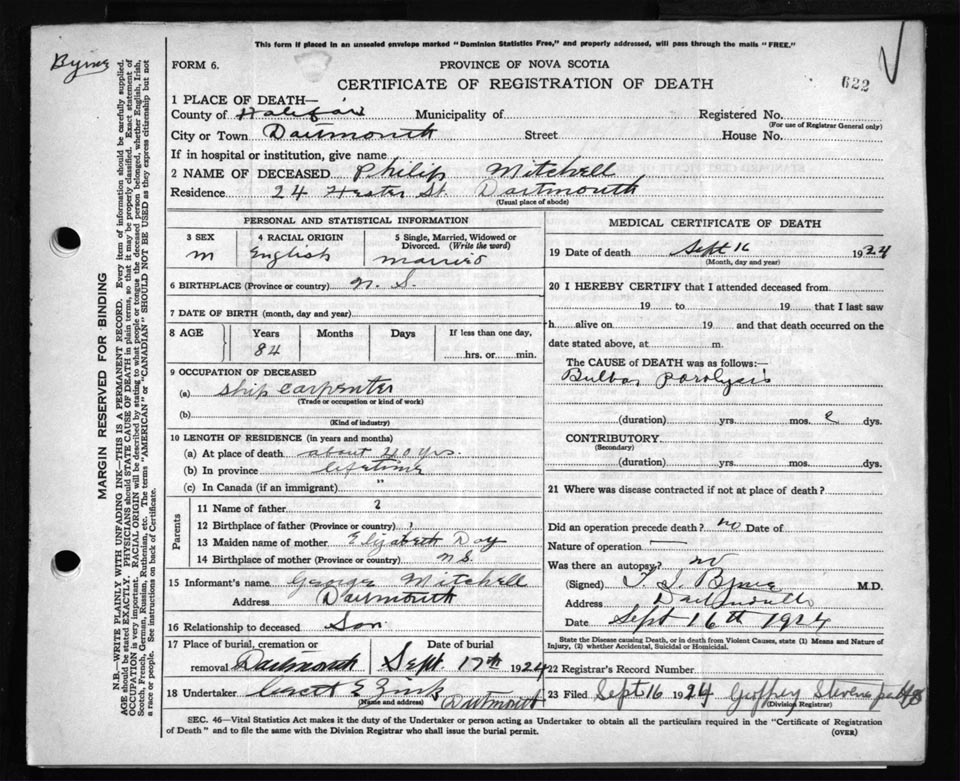 This form if placed in an unsealed envelope marked "Dominion Statistics Free," and properly addressed, will pass through the mails "FREE."
Byrne
FORM 6.
PROVINCE OF NOVA SCOTIA
CERTIFICATE OF REGISTRATION OF DEATH
622
1 PLACE OF DEATH—
County of Halifax Municipality of Registered No.
(For use of Registrar General only)
City or Town Dartmouth Street House No.
If in hospital or institution, give name
2 NAME OF DECEASED Philip Mitchell
Residence 24 Hester St. Dartmouth
(Usual place of abode)
PERSONAL AND STATISTICAL INFORMATION
3 SEX
m
4 RACIAL ORIGIN
English
5 Single, Married, Widowed or Divorced. (Write the word)
married
6 BIRTHPLACE (Province or country) N. S.
7 DATE OF BIRTH (month, day and year)
8 AGE Years Months Days If less than one day,
84 hrs. or min.
9 OCCUPATION OF DECEASED
(a) Ship carpenter
(Trade or occupation or kind of work)
(b)
(Kind of industry)
10 LENGTH OF RESIDENCE (in years and months)
(a) At place of death about 40 yrs.
(b) In province lifetime
(c) In Canada (if an immigrant) "
Parents
11 Name of father ?
12 Birthplace of father (Province or country) ?
13 Maiden name of mother Elizabeth Day
14 Birthplace of mother " N.S.
15 Informant's name George Mitchell
Address Dartmouth
16 Relationship to deceased Son
17 Place of burial, cremation or Date of burial
removal Dartmouth Sept 17th 1924
18 Undertaker E Zink Dartmouth
(Name and address)
MEDICAL CERTIFICATE OF DEATH
19 Date of death Sept 16 1924
(Month, day and year)
20 I HEREBY CERTIFY that I attended deceased from
19 to 19 that I last saw
h alive on 19 and that death occurred on the
date stated above, at m.
The CAUSE of DEATH was as follows:—
Bulbar paralysis
(duration) yrs. mos. dys.
CONTRIBUTORY
(Secondary)
(duration) yrs. mos. dys.
21 Where was disease contracted if not at place of death?
Did an operation precede death? no Date of
Nature of operation —
Was there an autopsy? no
(Signed) Byrne M.D.
Address Dartmouth
Date Sept 16th 1924
State the Disease causing Death, or in death from Violent Causes, state (1) Means and Nature of
Injury, (2) whether Accidental, Suicidal or Homicidal.
22 Registrar's Record Number
23 Filed Sept 16 1924 Geoffrey Stevens
(Division Registrar)
SEC. 46—Vital Statistics Act makes it the duty of the Undertaker or person acting as Undertaker to obtain all the particulars required in the "Certificate of Registration
of Death" and to file the same with the Division Registrar who shall issue the burial permit. (OVER)
MARGIN RESERVED FOR BINDING
N.B.—WRITE PLAINLY WITH UNFADING INK—THIS IS A PERMANENT RECORD. Every item of information should be carefully supplied.
AGE should be stated EXACTLY. PHYSICIANS should STATE CAUSE OF DEATH in plain terms, so that it may be properly classified. Exact statement of
OCCUPATION is very important. RACIAL ORIGIN will be described by stating to what people or tongue the deceased person belonged, whether English, Irish,
Scotch, French, German, Russian, Ruthenian, etc. The terms "AMERICAN" or "CANADIAN" SHOULD NOT BE USED as they express citizenship but not
a race or people. See instructions on back of Certificate.